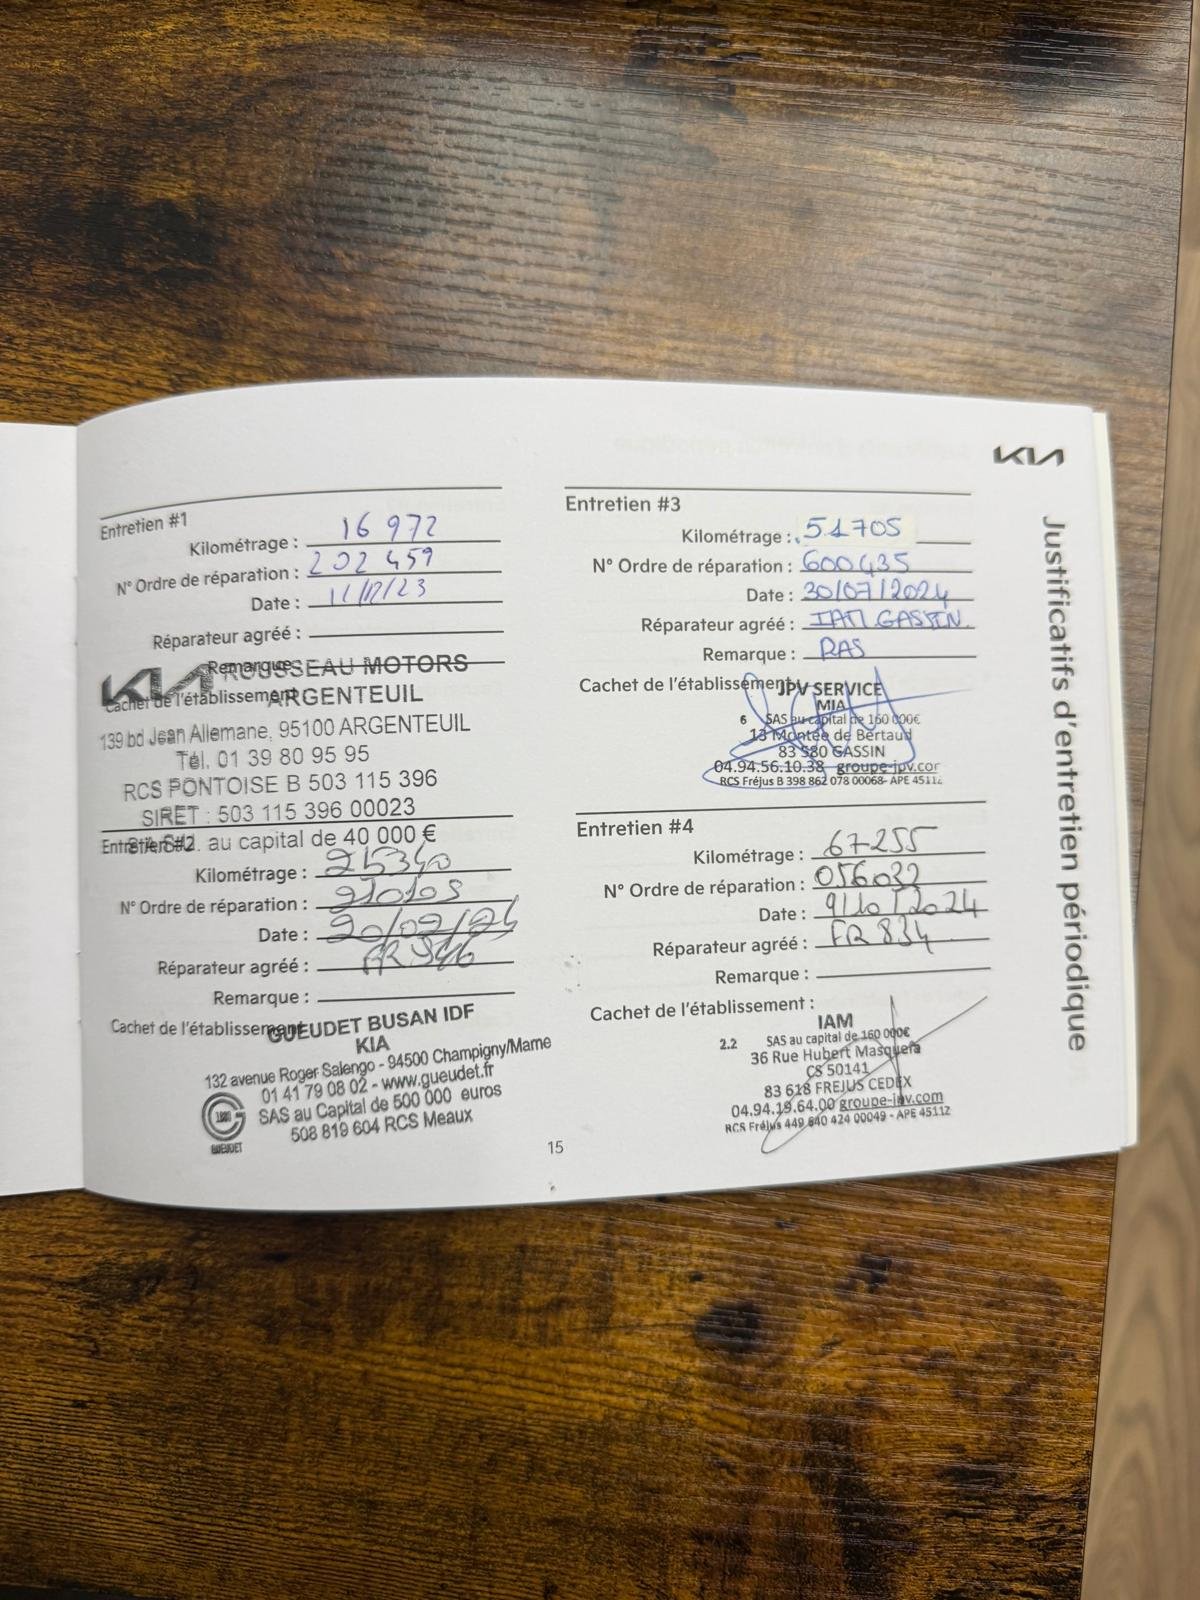 KIA
Justificatifs d'entretien périodique
Entretien #1
Kilométrage : 16 972
N° Ordre de réparation : 202 459
Date : 11/12/23
Réparateur agréé :
Remarque
Cachet de l'établissement
KIA ROUSSEAU MOTORS
ARGENTEUIL
139 bd Jean Allemane, 95100 ARGENTEUIL
Tél. 01 39 80 95 95
RCS PONTOISE B 503 115 396
SIRET : 503 115 396 00023
au capital de 40 000 €
Entretien #2
Kilométrage :
N° Ordre de réparation :
Date :
Réparateur agréé :
Remarque :
Cachet de l'établissement
GUEUDET BUSAN IDF
KIA
132 avenue Roger Salengo - 94500 Champigny/Marne
01 41 79 08 02 - www.gueudet.fr
SAS au Capital de 500 000 euros
508 819 604 RCS Meaux
GUEUDET
Entretien #3
Kilométrage : 51705
N° Ordre de réparation : 600435
Date : 30/07/2024
Réparateur agréé : IAM GASSIN
Remarque : RAS
Cachet de l'établissement
JPV SERVICE
MIA
6 SAS au capital de 160 000€
13 Montée de Bertaud
83 580 GASSIN
04.94.56.10.38 groupe-jpv.cor
RCS Fréjus B 398 862 078 00068- APE 4511z
Entretien #4
Kilométrage : 67255
N° Ordre de réparation : 056032
Date : 9/10/2024
Réparateur agréé : FR 834
Remarque :
Cachet de l'établissement :
IAM
2.2 SAS au capital de 160 000€
36 Rue Hubert Masquefa
CS 50141
83 618 FREJUS CEDEX
04.94.19.64.00 groupe-jpv.com
RCS Fréjus 449 640 424 00049 - APE 4511Z
15